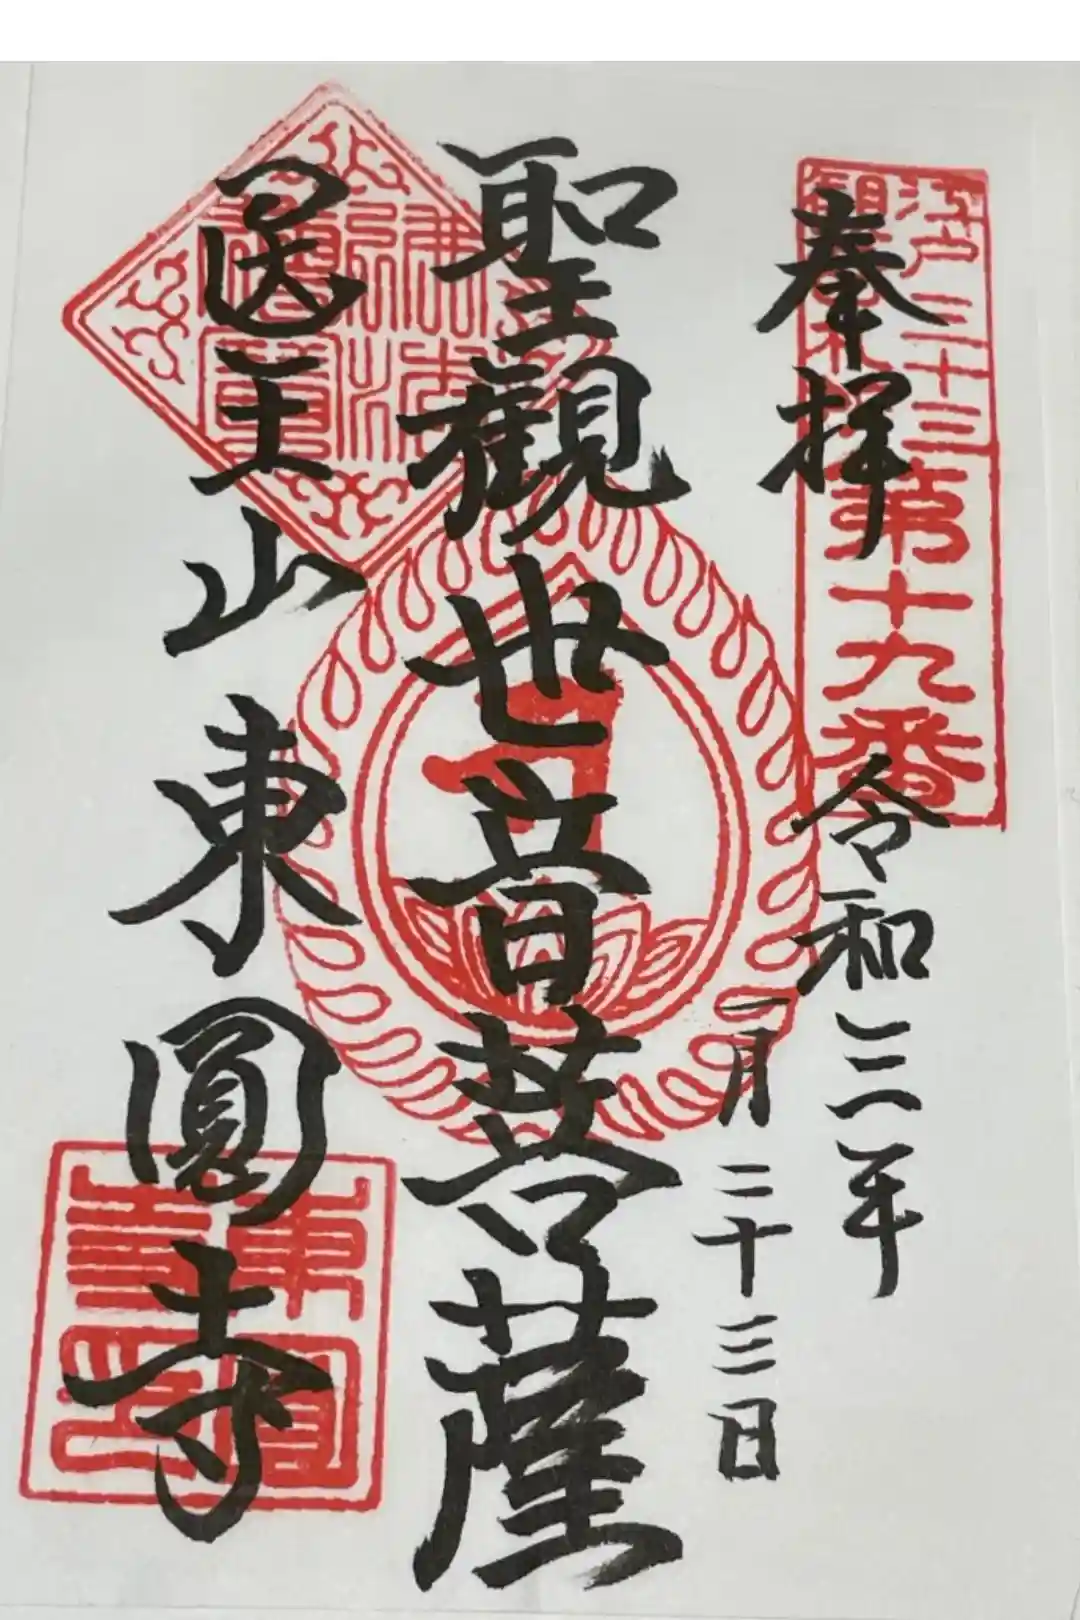 江戸三十三
観音札所
第十九番
奉拝
令和三年
一月二十三日
聖観世音菩薩
佛法僧寶
医王山東圓寺
東圓寺印